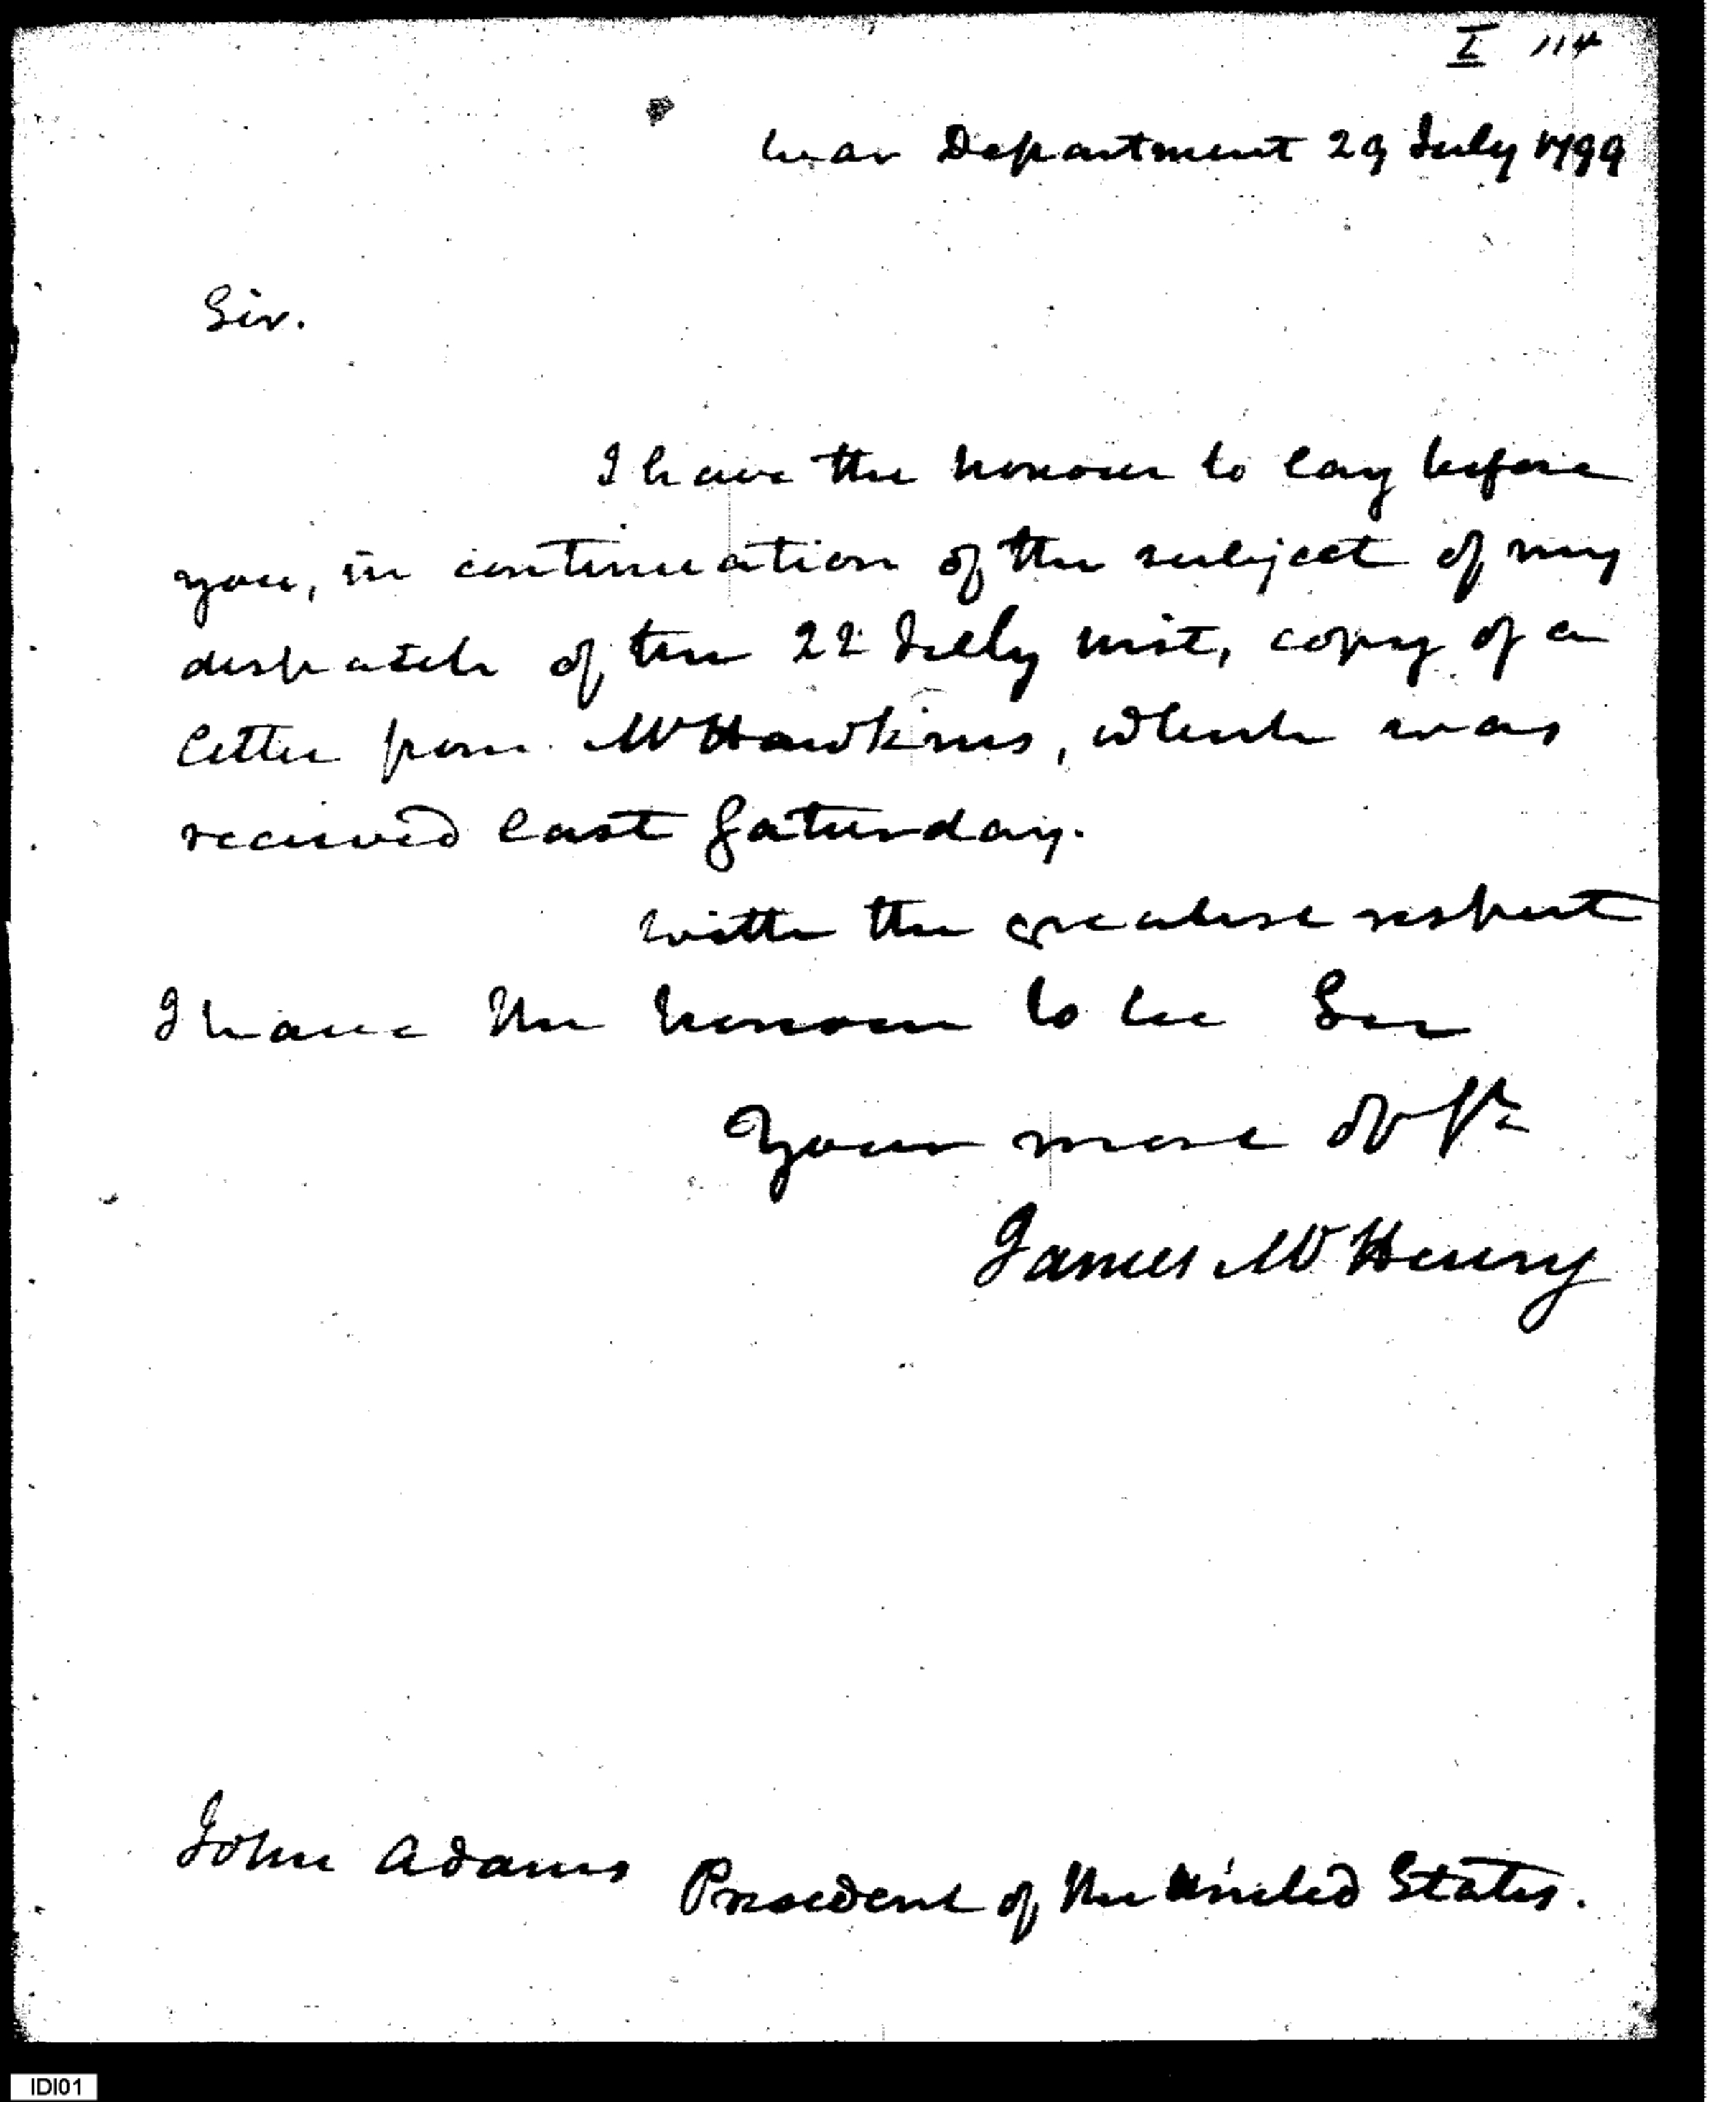 I 114
War Department 29 July 1799
Sir.
I have the honour to lay before
you, in continuation of the subject of my
dispatch of the 22 July inst, copy of a
letter from Mr Hawkins, which was
received last Saturday.
With the greatest respect
I have the honour to be Sir
Your most
James McHenry
John Adams President of the United States.
IDI01